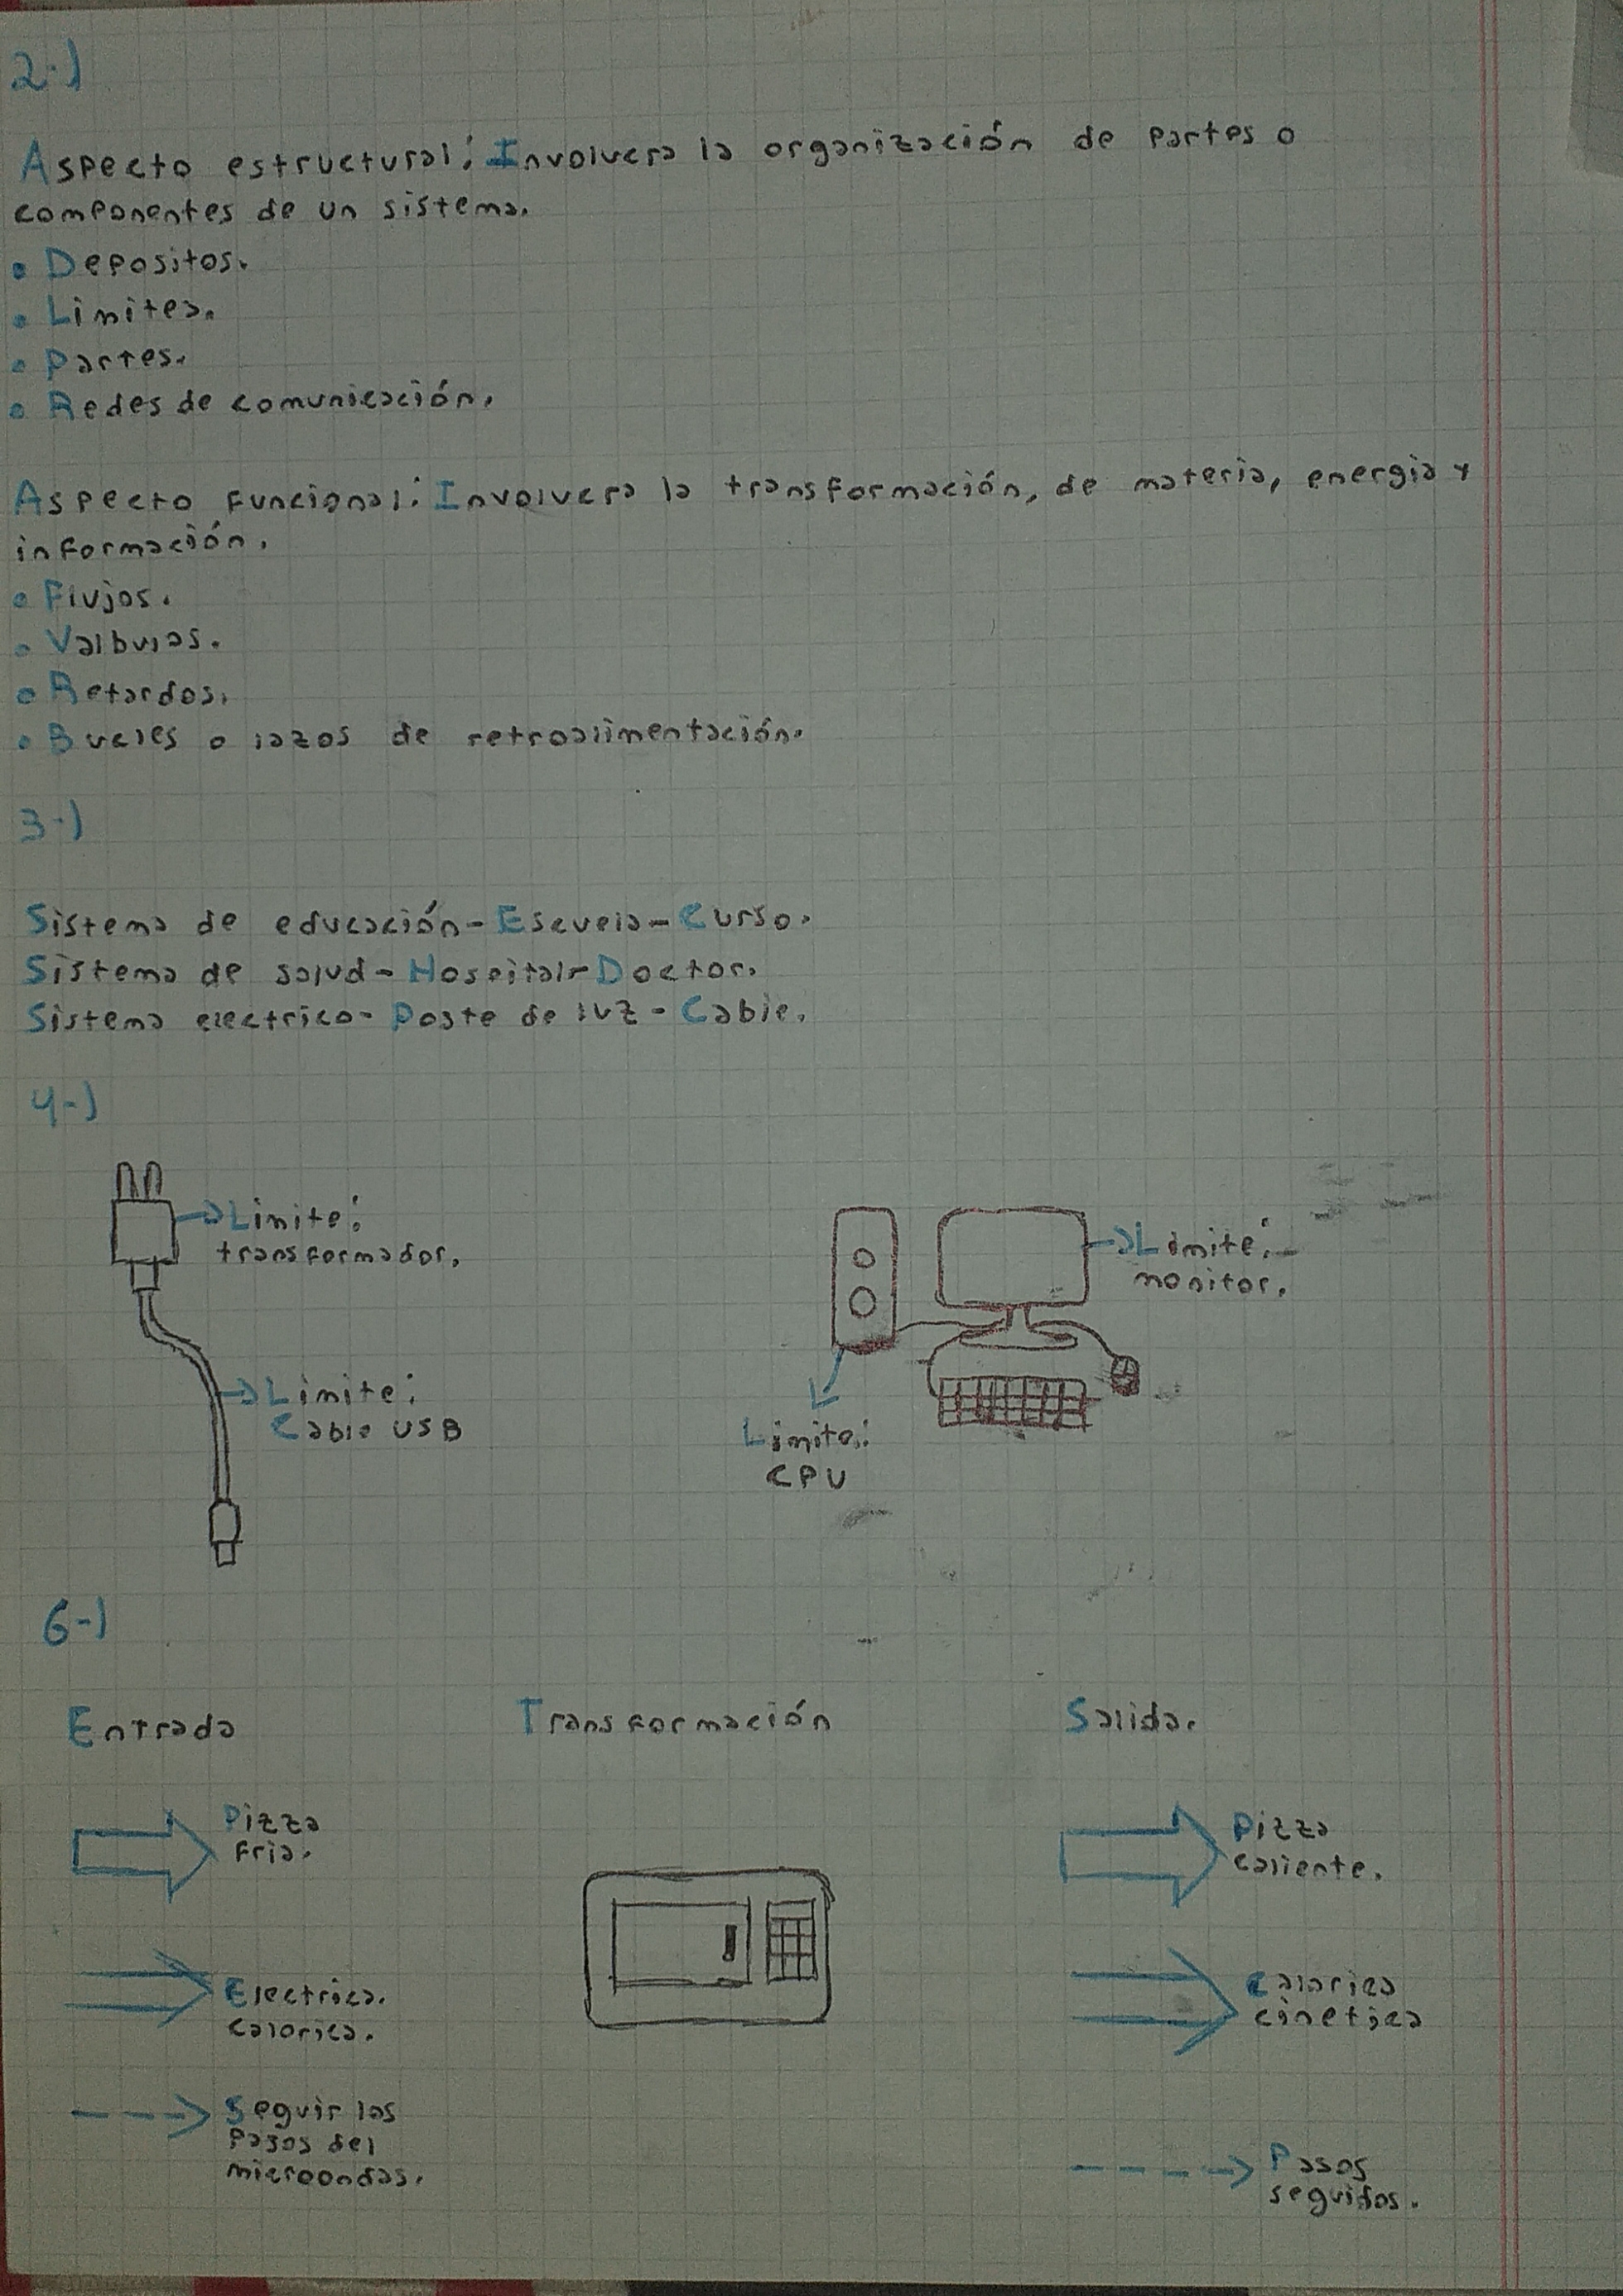 2-)
Aspecto estructural: Involucra la organización de partes o
componentes de un sistema.
• Depositos.
• Limites.
• Partes.
• Redes de comunicación.
Aspecto funcional: Involucra la transformación, de materia, energia y
información.
• Flujos.
• Valbulas.
• Retardos.
• Bucles o lazos de retroalimentación.
3-)
Sistema de educación - Escuela - Curso.
Sistema de salud - Hospital - Doctor.
Sistema electrico - Poste de luz - Cable.
4-)
Limite:
transformador.
Limite:
Cable USB
Limite:
monitor.
Limite:
CPU
6-)
Entrada
Transformación
Salida.
Pizza
fria.
Pizza
caliente.
Electrica.
calorica.
Calorica
cinetica
Seguir los
pasos del
microondas.
Pasos
seguidos.